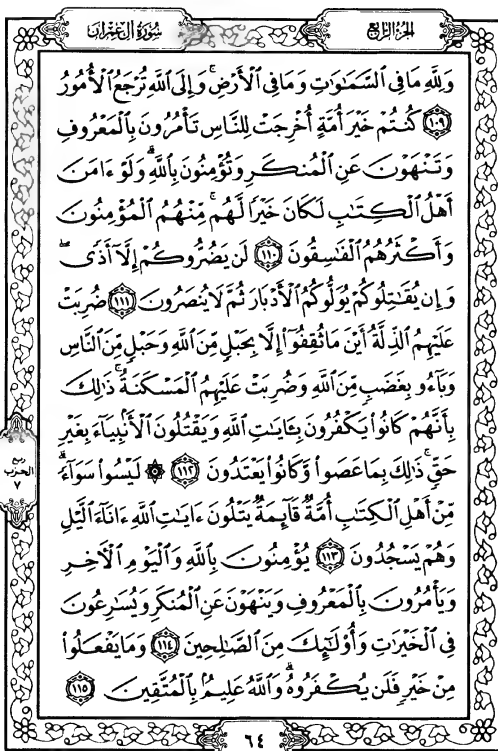 الجزء الرابع
سورة آل عمران
وَلِلَّهِ مَا فِي ٱلسَّمَٰوَٰتِ وَمَا فِي ٱلْأَرْضِ ۚ وَإِلَى ٱللَّهِ تُرْجَعُ ٱلْأُمُورُ
١٠٩ كُنتُمْ خَيْرَ أُمَّةٍ أُخْرِجَتْ لِلنَّاسِ تَأْمُرُونَ بِٱلْمَعْرُوفِ
وَتَنْهَوْنَ عَنِ ٱلْمُنكَرِ وَتُؤْمِنُونَ بِٱللَّهِ ۗ وَلَوْ ءَامَنَ
أَهْلُ ٱلْكِتَٰبِ لَكَانَ خَيْرًا لَّهُم ۚ مِّنْهُمُ ٱلْمُؤْمِنُونَ
وَأَكْثَرُهُمُ ٱلْفَٰسِقُونَ ١١٠ لَن يَضُرُّوكُمْ إِلَّآ أَذًى ۖ
وَإِن يُقَٰتِلُوكُمْ يُوَلُّوكُمُ ٱلْأَدْبَارَ ثُمَّ لَا يُنصَرُونَ ١١١ ضُرِبَتْ
عَلَيْهِمُ ٱلذِّلَّةُ أَيْنَ مَا ثُقِفُوٓا۟ إِلَّا بِحَبْلٍ مِّنَ ٱللَّهِ وَحَبْلٍ مِّنَ ٱلنَّاسِ
وَبَآءُو بِغَضَبٍ مِّنَ ٱللَّهِ وَضُرِبَتْ عَلَيْهِمُ ٱلْمَسْكَنَةُ ۚ ذَٰلِكَ
بِأَنَّهُمْ كَانُوا۟ يَكْفُرُونَ بِـَٔايَٰتِ ٱللَّهِ وَيَقْتُلُونَ ٱلْأَنۢبِيَآءَ بِغَيْرِ
حَقٍّ ۚ ذَٰلِكَ بِمَا عَصَوا۟ وَّكَانُوا۟ يَعْتَدُونَ ١١٢ ۞ لَيْسُوا۟ سَوَآءً ۗ
مِّنْ أَهْلِ ٱلْكِتَٰبِ أُمَّةٌ قَآئِمَةٌ يَتْلُونَ ءَايَٰتِ ٱللَّهِ ءَانَآءَ ٱلَّيْلِ
وَهُمْ يَسْجُدُونَ ١١٣ يُؤْمِنُونَ بِٱللَّهِ وَٱلْيَوْمِ ٱلْأَخِرِ
وَيَأْمُرُونَ بِٱلْمَعْرُوفِ وَيَنْهَوْنَ عَنِ ٱلْمُنكَرِ وَيُسَٰرِعُونَ
فِي ٱلْخَيْرَٰتِ وَأُو۟لَٰٓئِكَ مِنَ ٱلصَّٰلِحِينَ ١١٤ وَمَا يَفْعَلُوا۟
مِنْ خَيْرٍ فَلَن يُكْفَرُوهُ ۗ وَٱللَّهُ عَلِيمٌۢ بِٱلْمُتَّقِينَ ١١٥
ربع
الحزب
٧
٦٤